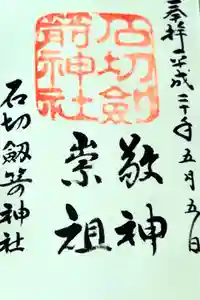 奉拝 平成三十年五月五日
石切劔
箭神社
敬神
崇祖
石切劔箭神社